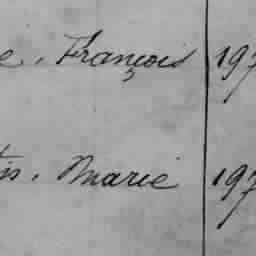 e, François 197
tis, Marie 197